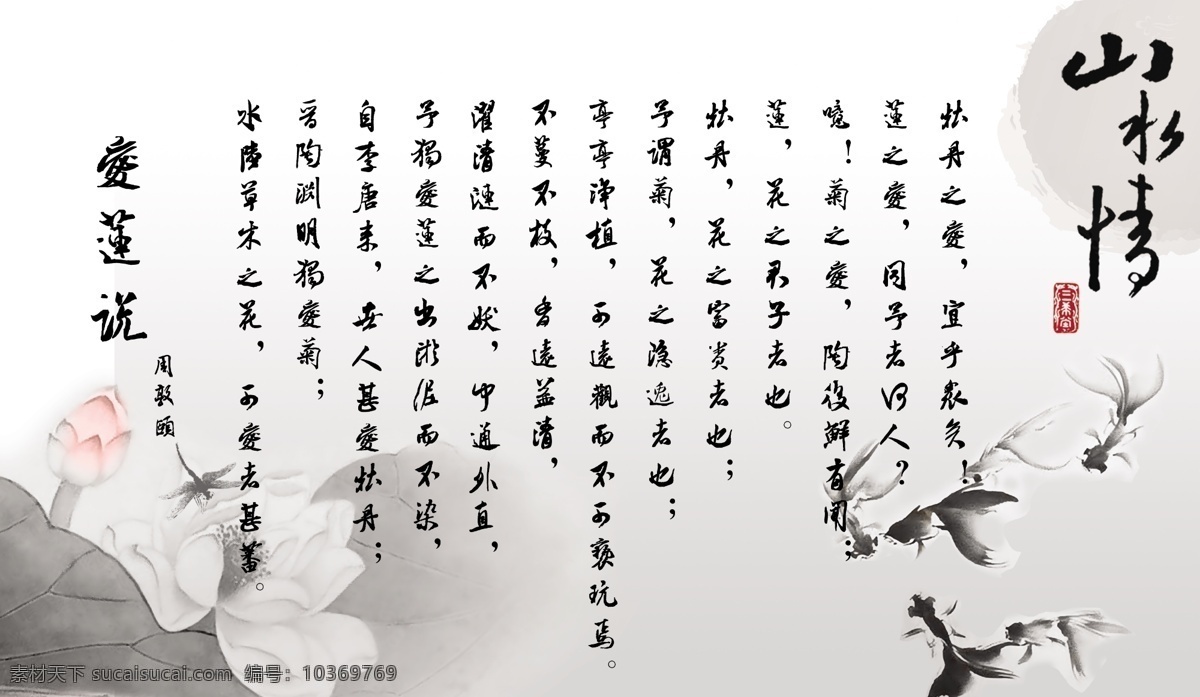 愛蓮说
周敦頤
水陸草木之花，可愛者甚蕃。
晋陶渊明獨愛菊；
自李唐来，世人甚愛牡丹；
予獨愛蓮之出淤泥而不染，
濯清漣而不妖，中通外直，
不蔓不枝，香遠益清，
亭亭净植，可遠觀而不可褻玩焉。
予謂菊，花之隐逸者也；
牡丹，花之富贵者也；
蓮，花之君子者也。
噫！菊之愛，陶後鮮有聞；
蓮之愛，同予者何人？
牡丹之愛，宜乎衆矣！
山水情
素材天下 sucaisucai.com 编号：10369769